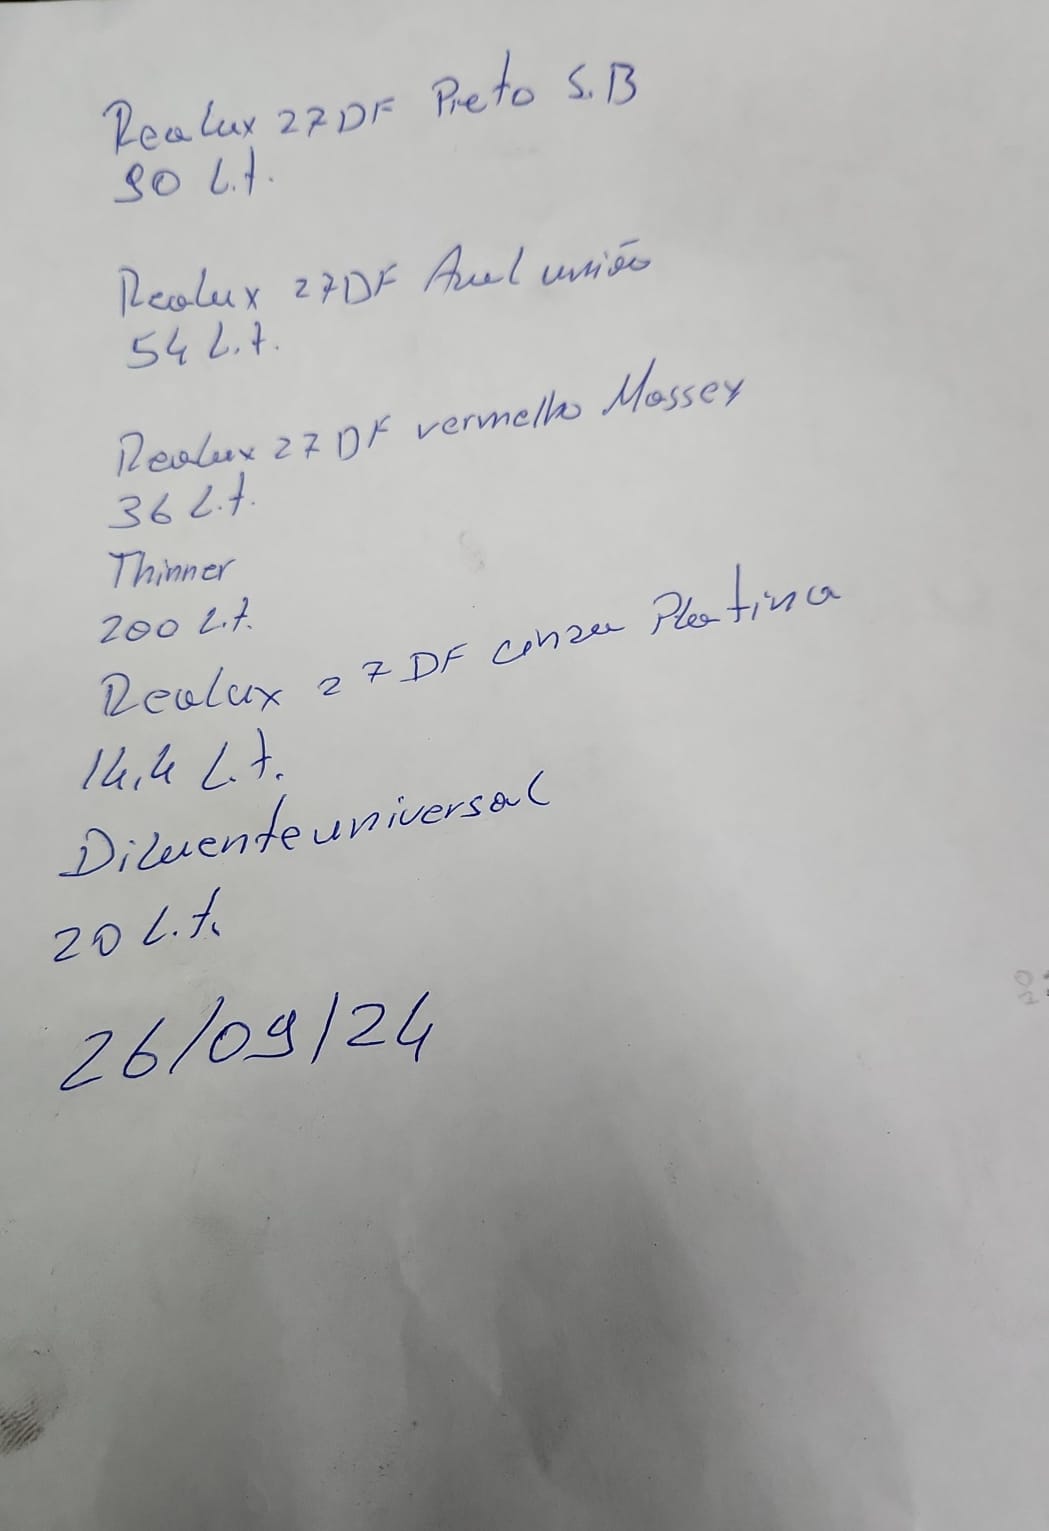 Realux 27DF Preto S.B
90 L.t.
Realux 27DF Azul união
54 L.t.
Realux 27DF vermelho Massey
36 L.t.
Thinner
200 L.t.
Realux 27DF cinza Platina
14,4 L.t.
Diluente universal
20 L.t.
26/09/24